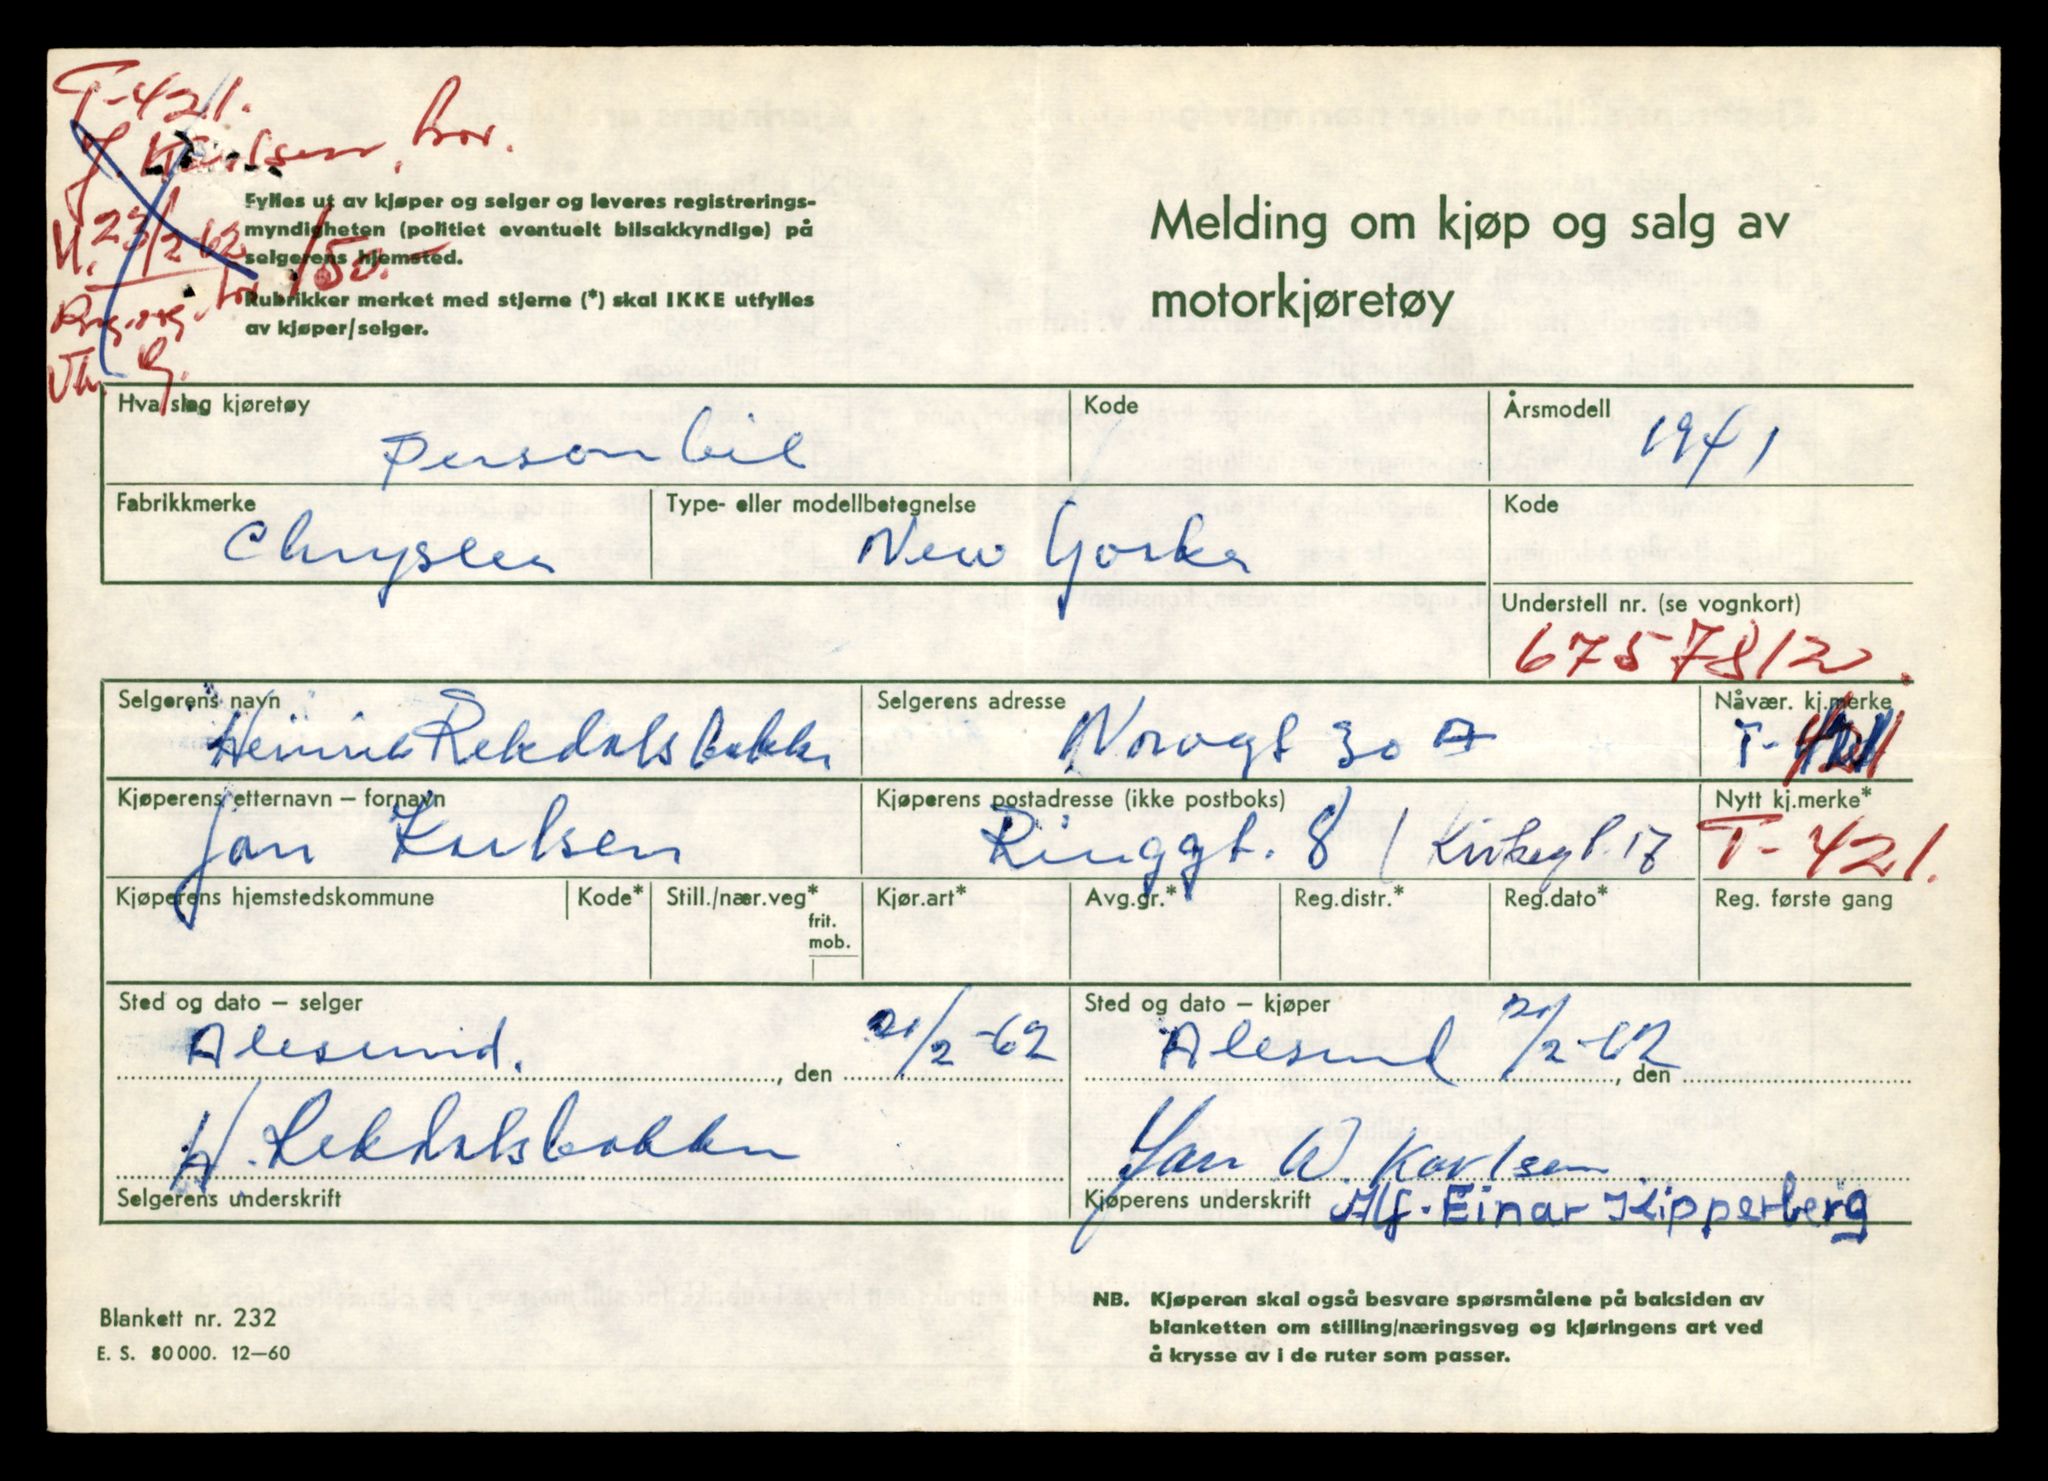 T-421.
J. Karlsen, hor.
U. 23/2-62.
150.-
Fylles ut av kjøper og selger og leveres registrerings-
myndigheten (politiet eventuelt bilsakkyndige) på
selgerens hjemsted.
Rubrikker merket med stjerne (*) skal IKKE utfylles
av kjøper/selger.
Melding om kjøp og salg av
motorkjøretøy
Hva slag kjøretøy
Kode
Årsmodell
Personbil
1941
Fabrikkmerke
Type- eller modellbetegnelse
Kode
Chrysler
New Yorker
Understell nr. (se vognkort)
6757812.
Selgerens navn
Selgerens adresse
Nåvær. kj.merke
Henrik Rekdalsbakke
Norvgt 30 A
T-421
Kjøperens etternavn – fornavn
Kjøperens postadresse (ikke postboks)
Nytt kj.merke*
Jan Karlsen
Ringgt. 8 / Kirkegt. 18
T-421.
Kjøperens hjemstedskommune
Kode*
Still./nær.veg*
frit.
mob.
Kjør.art*
Avg.gr.*
Reg.distr.*
Reg.dato*
Reg. første gang
Sted og dato – selger
Sted og dato – kjøper
Alesund. , den 21/2-62
Alesund 21/2-62 , den
H. Rekdalsbakken
Jan W. Karlsen
Selgerens underskrift
Kjøperens underskrift
Alf-Einar Kipperberg
Blankett nr. 232
E. S. 80 000. 12–60
NB. Kjøperen skal også besvare spørsmålene på baksiden av
blanketten om stilling/næringsveg og kjøringens art ved
å krysse av i de ruter som passer.